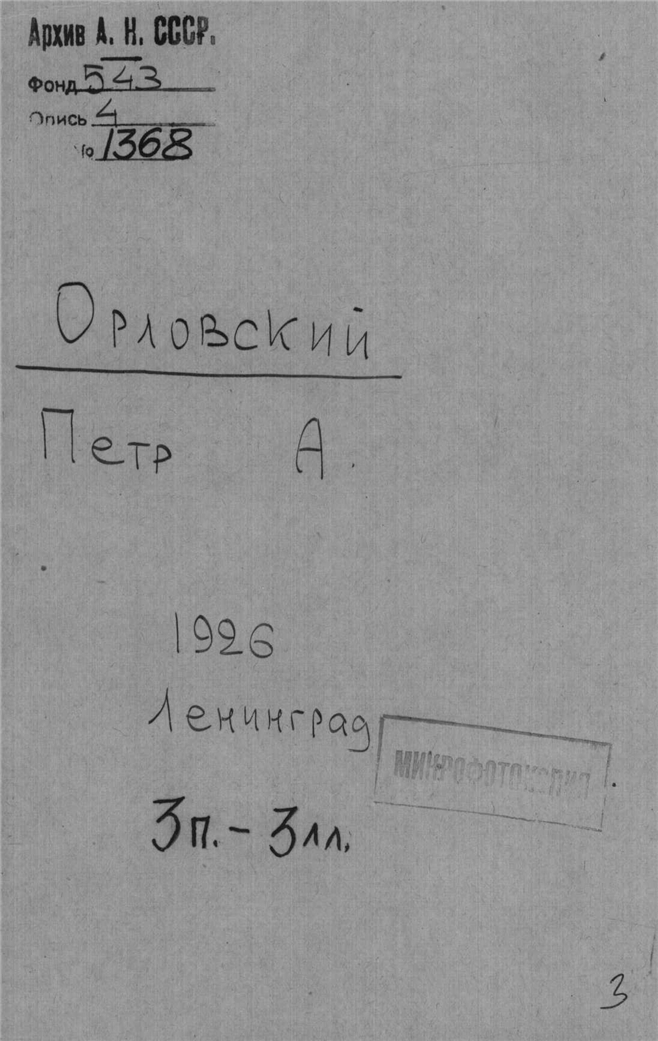 Архив А. Н. СССР.
Фонд 543
Опись 4
№ 1368
Орловский
Петр А.
1926
Ленинград
МИКРОФОТОКОПИЯ
3п. - 3лл.
3